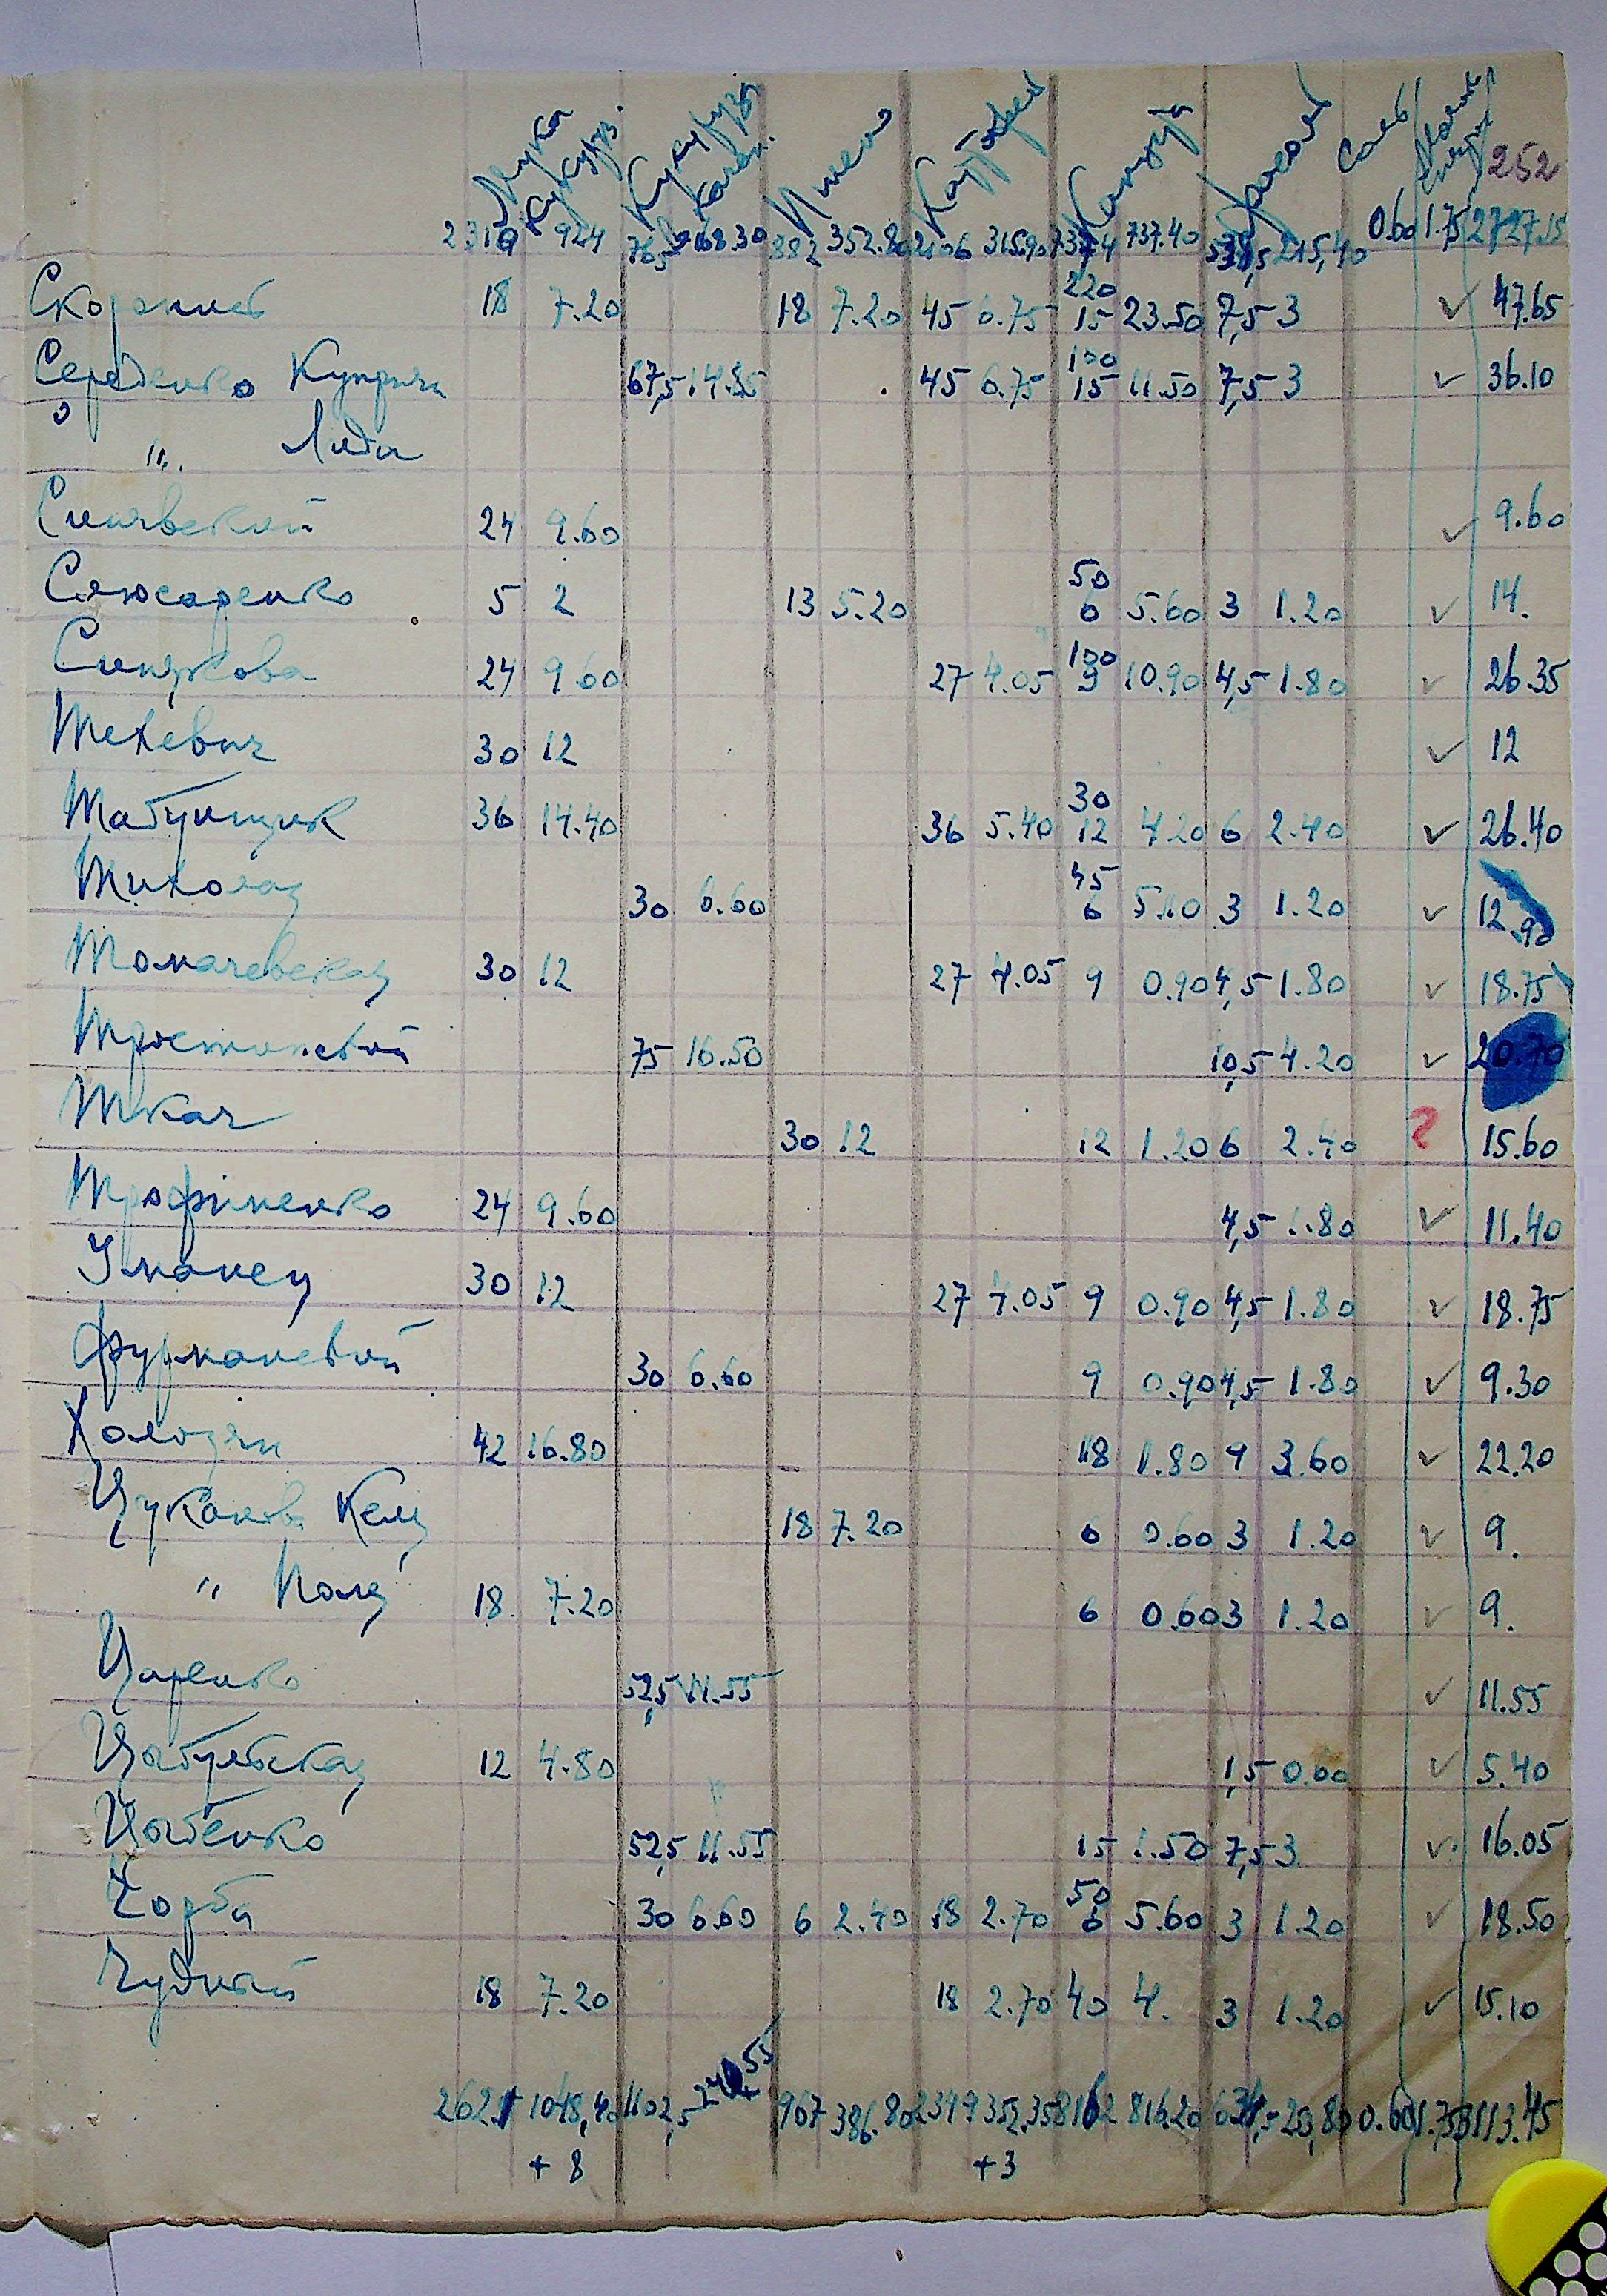 Мука кукурузн. Кукуруза кочан. Пшено Картофель Капуста Фасоль Соль 252
2310 924 765 168.30 882 352.80 2106 315.90 7374 737.40 538,5 215,40 0.60 1.75 2727.15
18 7.20 18 7.20 45 6.75 220 15 23.50 7,5 3 ✓ 47.65
Середенко 67,5 14.85 45 6.75 100 15 11.50 7,5 3 ✓ 36.10
" Лида
Синявский 24 9.60 ✓ 9.60
Слюсаренко 5 2 13 5.20 50 6 5.60 3 1.20 ✓ 14.
24 9.60 27 4.05 100 9 10.90 4,5 1.80 ✓ 26.35
Техевич 30 12 ✓ 12
Табунщик 36 14.40 36 5.40 30 12 4.20 6 2.40 ✓ 26.40
Тихолаз 30 6.60 45 6 5.10 3 1.20 ✓ 12.90
Томачевская 30 12 27 4.05 9 0.90 4,5 1.80 ✓ 18.75
75 16.50 10,5 4.20 ✓ 20.70
Ткач 30 12 12 1.20 6 2.40 ? 15.60
Трофименко 24 9.60 4,5 1.80 ✓ 11.40
Уманец 30 12 27 4.05 9 0.90 4,5 1.80 ✓ 18.75
30 6.60 9 0.90 4,5 1.80 ✓ 9.30
42 16.80 18 1.80 9 3.60 ✓ 22.20
18 7.20 6 0.60 3 1.20 ✓ 9.
" Поля 18 7.20 6 0.60 3 1.20 ✓ 9.
Царенко 52,5 11.55 ✓ 11.55
Цыбульская 12 4.80 1,5 0.60 ✓ 5.40
Цыбенко 52,5 11.55 15 1.50 7,5 3 ✓ 16.05
Чорба 30 6.60 6 2.40 18 2.70 50 6 5.60 3 1.20 ✓ 18.50
Чудный 18 7.20 18 2.70 40 4. 3 1.20 ✓ 15.10
2621 1048,40 1102,5 967 386.80 2349 352.35 8162 816.20 0.60 1.75 3113.45
+ 8 +3